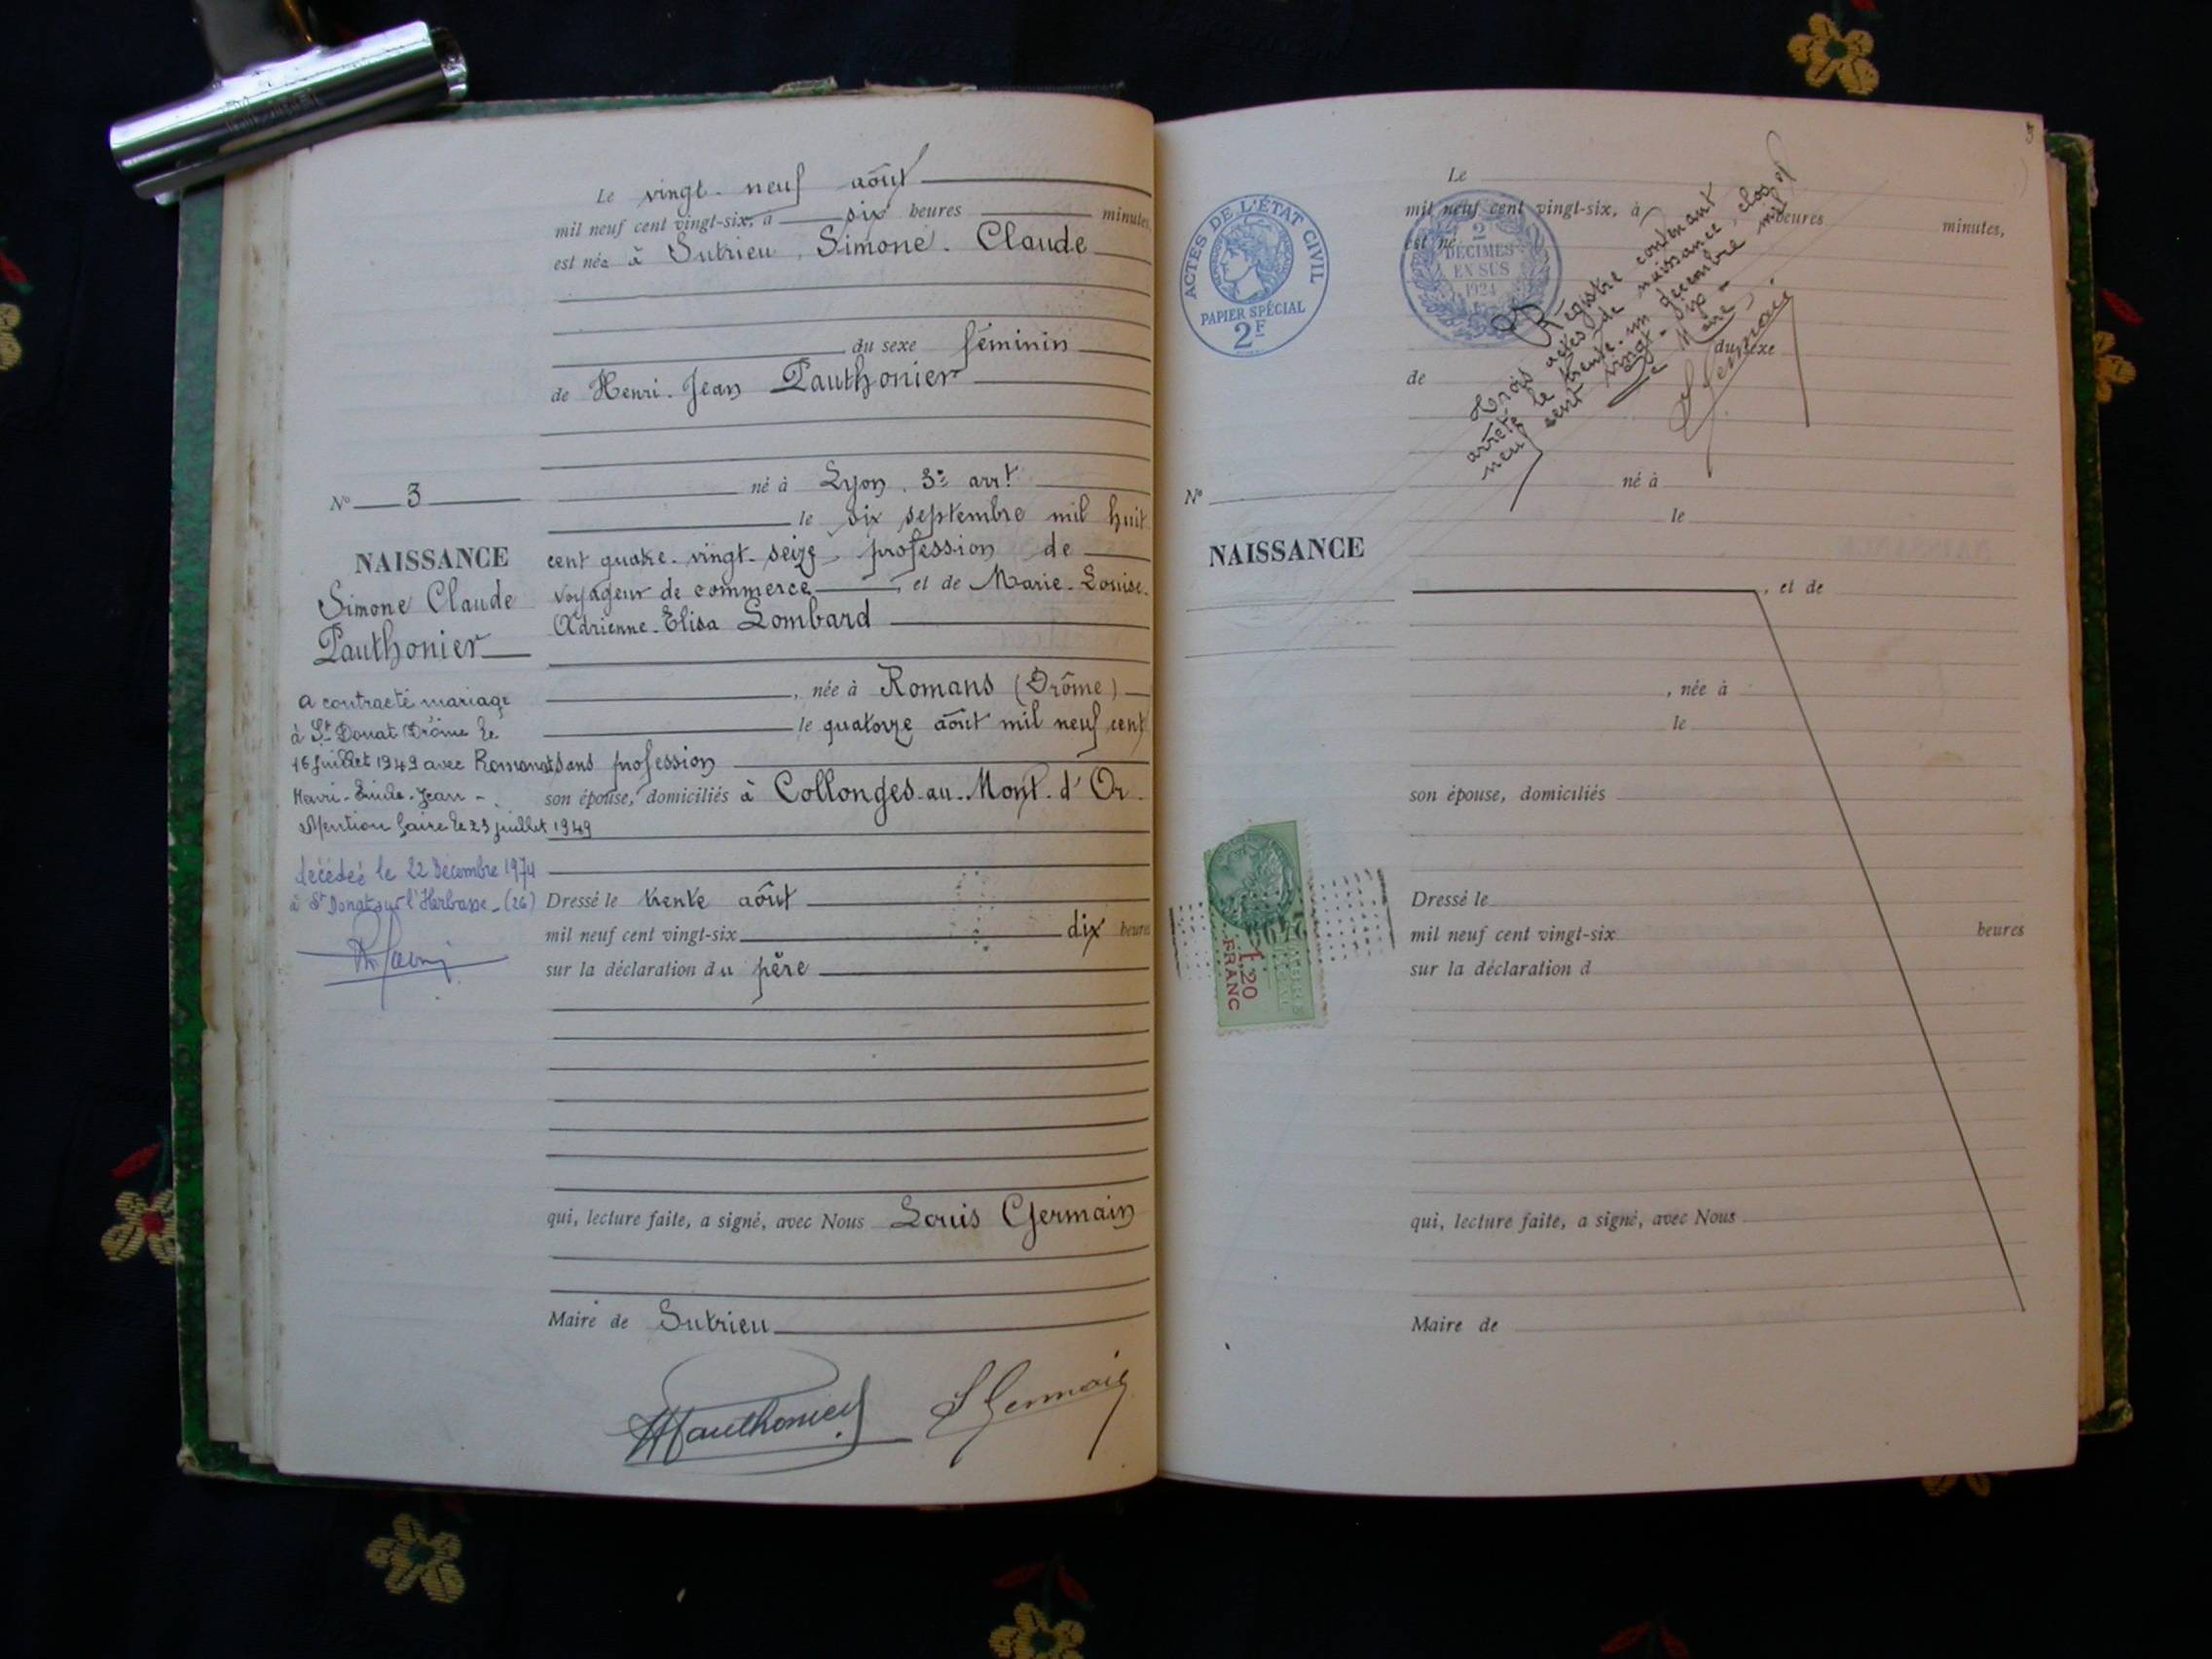 Le vingt-neuf août
mil neuf cent vingt-six, à six heures minutes,
est née à Sutrieu, Simone-Claude
du sexe féminin
de Henri-Jean Pauthonier
né à Lyon, 3e arrt
le six septembre mil huit
cent quatre-vingt-seize, profession de
voyageur de commerce, et de Marie-Louise-
Adrienne-Elisa Lombard
, née à Romans (Drôme)
le quatorze août mil neuf cent
sans profession
son épouse, domiciliés à Collonges-au-Mont-d'Or
Dressé le trente août
mil neuf cent vingt-six dix heures
sur la déclaration du père
qui, lecture faite, a signé, avec Nous Louis Germain
Maire de Sutrieu
HPauthonier L Germain
No 3
NAISSANCE
Simone Claude
Pauthonier
a contracté mariage
à St Donat Drôme le
16 juillet 1949 avec Romanat
Henri-Emile-Jean-.
Mention faire le 23 juillet 1949
décédée le 22 Décembre 1974
à St Donat sur l'Herbasse-(26)
3
ACTES DE L'ÉTAT CIVIL
PAPIER SPÉCIAL
2F
2
DÉCIMES
EN SUS
1924
Registre contenant
trois actes de naissance, clos et
arrêté le trente-un décembre mil
neuf cent vingt-six-
Le Maire,
L Germain
Le
mil neuf cent vingt-six, à heures minutes,
est né
du sexe
de
né à
No
le
NAISSANCE
, et de
, née à
le
son épouse, domiciliés
Dressé le
mil neuf cent vingt-six heures
sur la déclaration d
1,20
FRANC
qui, lecture faite, a signé, avec Nous
Maire de